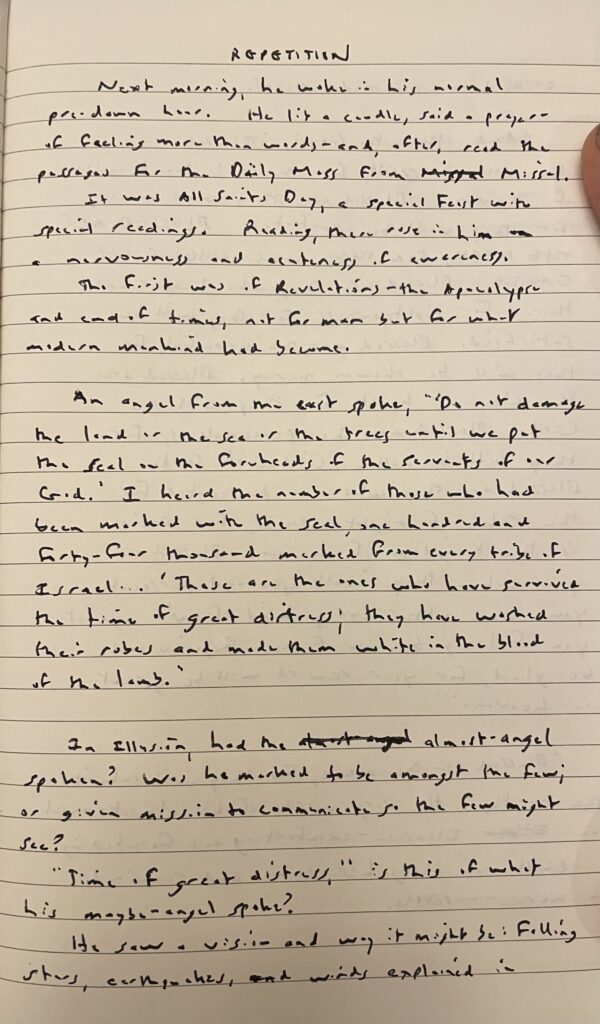 REPETITION
Next morning, he woke in his normal
pre-dawn hour. He lit a candle, said a prayer -
of feeling more than words - and, after, read the
passages for the Daily Mass from Missal.
It was All Saints Day, a special Feast with
special readings. Reading, there rose in him
a nervousness and acuteness of awareness.
The first was of Revelations - the Apocalypse
and end of times, not for man but for what
modern mankind had become.
An angel from the east spoke, "'Do not damage
the land or the sea or the trees until we put
the seal on the foreheads of the servants of our
God.' I heard the number of those who had
been marked with the seal, one hundred and
forty-four thousand marked from every tribe of
Israel... 'These are the ones who have survived
the time of great distress; they have washed
their robes and made them white in the blood
of the lamb.'
In Illusion, had the almost-angel
spoken? Was he marked to be amongst the few;
or given mission to communicate so the few might
see?
"Time of great distress," is this of what
his maybe-angel spoke?
He saw a vision and way it might be: Falling
stars, earthquakes, and winds explained in